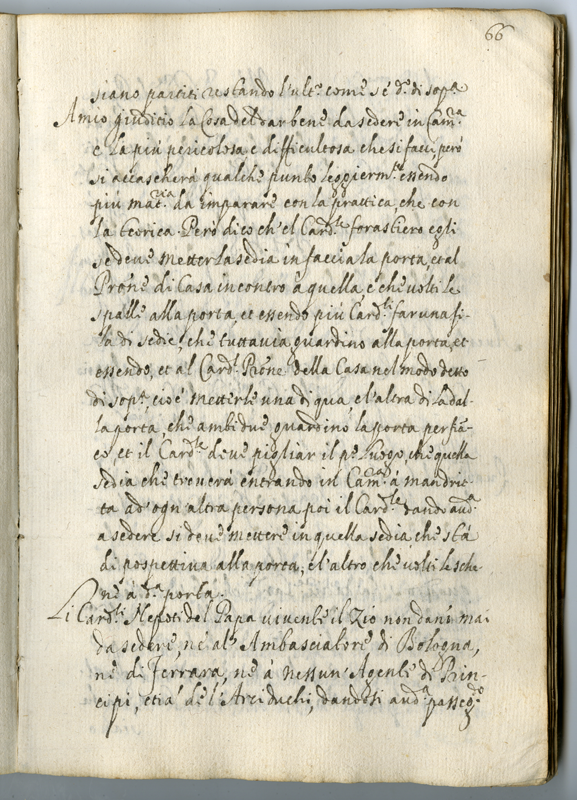 66
siano partiti restando l'ult.º come s'è d.º di sop.ª
A mio giuditio la Cosa del dar bene da sedere in Cam.ra
è la più pericolosa e difficultosa che si facci però
si accascherà qualche punto leggierm.te essendo
più mat.ria da imparare con la prattica, che con
la teorica. Però dico ch'el Card.le forastiero egli
se deve metter la sedia in faccia la porta, et al
Prõne di Casa incontro à quella, e che volti le
spalle alla porta, et essendo più Card.li far una fi-
la di sedie, che tuttavia guardino alla porta, et
essendo, et al Card.l Prõne della Casa nel modo detto
di sop.ª, cioè metterle una di qua, e l'altra di là dal-
la porta, che ambidue guardino la porta per fia-
co, et il Card.le deve pigliar il p.º luogo, che quella
sedia che troverà entrando in Cam.ra à man drit-
ta ad' ogn' altra persona poi il Card.le dando aud.ª
a sedere si deve mettere in quella sedia, che stà
di prospettiva alla porta, e l'altro che volti le sche-
ne à d.ª porta.
Li Card.li Nepoti del Papa vivente il Zio non danno mai
da sedere, né al Ambasciatore di Bologna,
né di Ferrara, né à nessun' Agente di Prin-
cipi, etiã de l'Arciduchi, dandosi aud.ª passeg.do